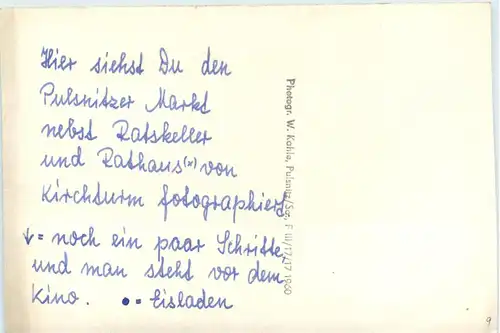 Hier siehst Du den
Pulsnitzer Markt
nebst Ratskeller
und Rathaus (x) von
Kirchturm fotographiert
↓ = noch ein paar Schritte,
und man steht vor dem
Kino. ● = Eisladen
Photogr. W. Kahle, Pulsnitz/Sa. F III/17/17 1960
9